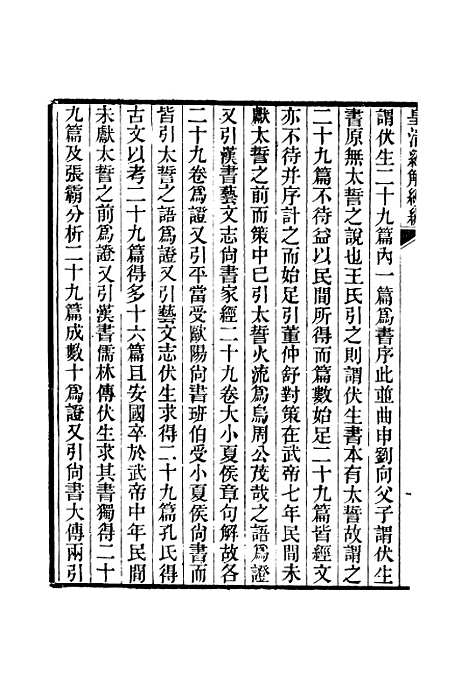 皇清經解續編
謂伏生二十九篇內一篇爲書序此並曲申劉向父子謂伏生
書原無太誓之說也王氏引之則謂伏生書本有太誓故謂之
二十九篇不待益以民間所得而篇數始足二十九篇皆經文
亦不待并序計之而始足引董仲舒對策在武帝七年民間未
獻太誓之前而策中已引太誓火流爲烏周公茂哉之語爲證
又引漢書藝文志尙書家經二十九卷大小夏侯章句解故各
二十九卷爲證又引平當受歐陽尙書班伯受小夏侯尙書而
皆引太誓之語爲證又引藝文志伏生求得二十九篇孔氏得
古文以考二十九篇得多十六篇且安國卒於武帝中年民間
未獻太誓之前爲證又引漢書儒林傳伏生求其書獨得二十
九篇及張霸分析二十九篇成數十爲證又引尙書大傳兩引